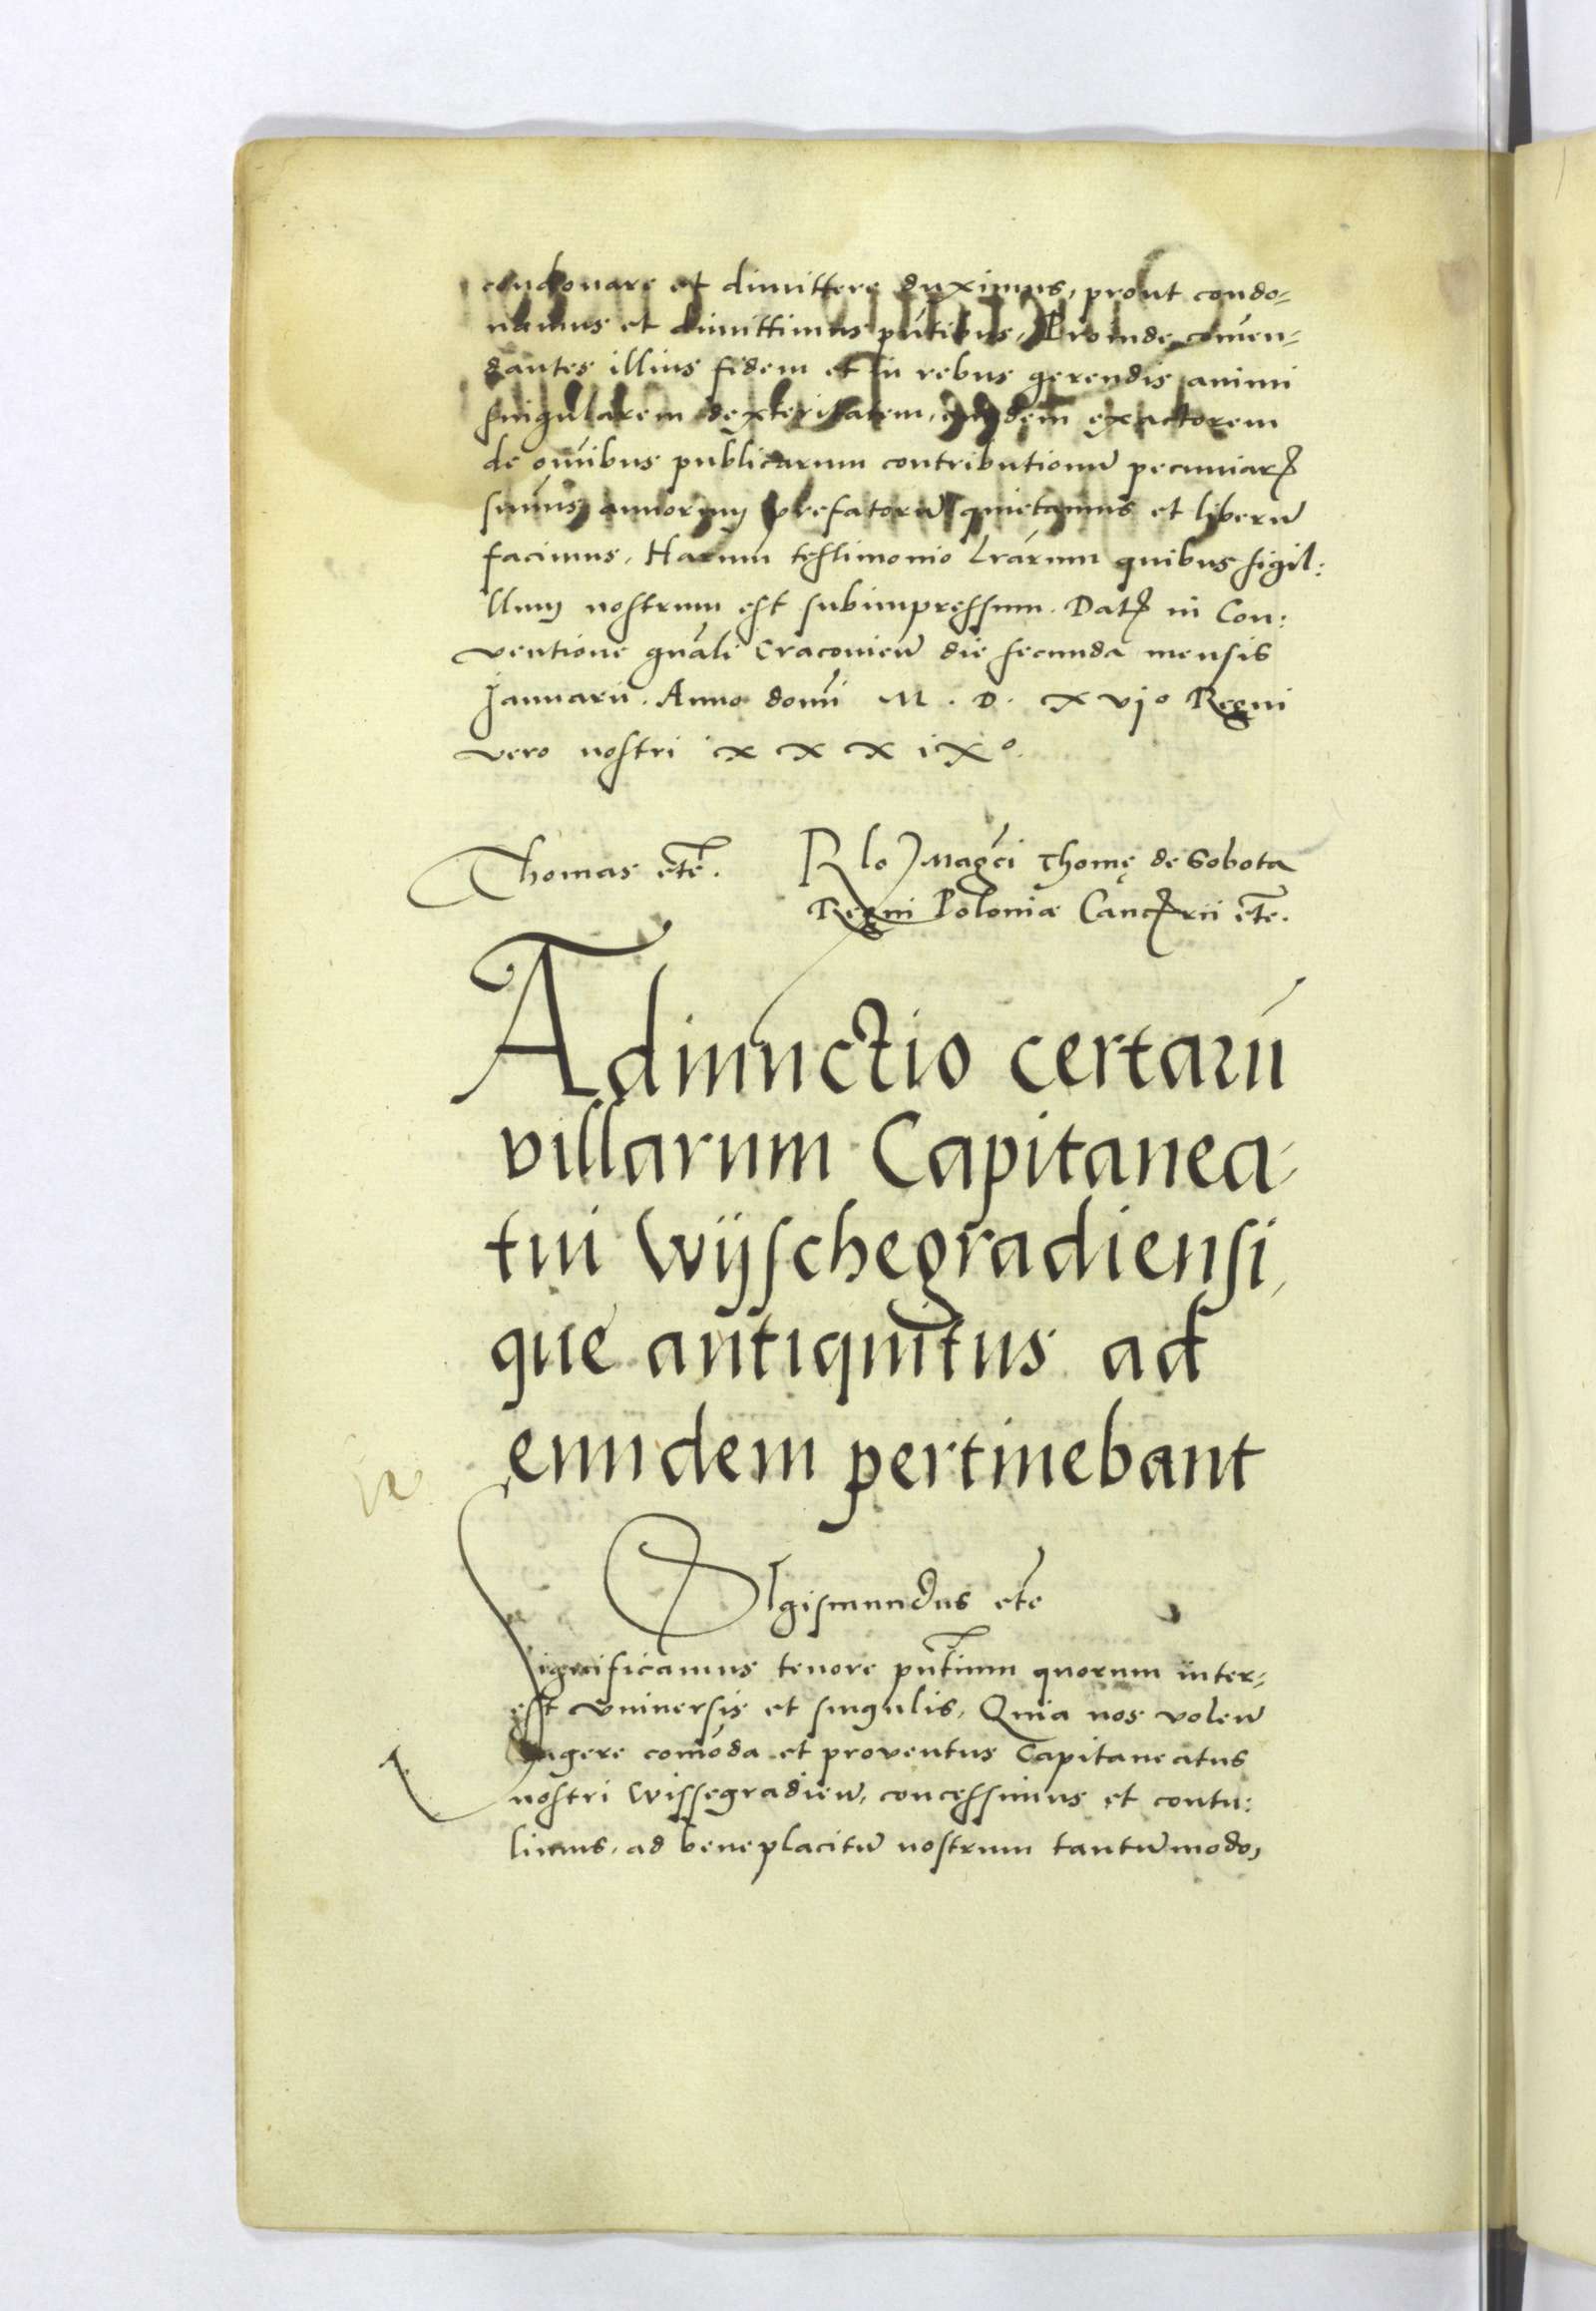 condonare et dimittere duximus, prout condo-
namus et dimittimus pñtibus, Proinde com̄en-
dantes illius fidem et in rebus gerendis animi
singularem dexteritatem, eundem exactorem
de om̄ibus publicarum contributionū pecuniarꝝ
sum̄is annorum prefatorū quietamus et liberū
facimus, Harum testimonio l̄rarum quibus sigil:
llum nostrum est subimpressum. Datꝝ in Con:
ventione gn̄ali Cracovień die secunda mensis
Januarii. Anno domi M . D . x x vjº Regni
vero nostri x x x i xº.
Thomas etc̄. Rlo Magc̄i Thomę de Sobota
Regni Poloniæ Canc̄rii etc̄.
Adiunctio certarū
villarum Capitanea-
tui Wijschegradiensi,
que antiquitus ad
eundem pertinebant
SIgismundus etc̄
Significamus tenore pñtium quorum inter-
est vniversis et singulis, Quia nos voleń
augere com̄oda et proventus Capitaneatus
nostri Wissegradień, concessimus et contu:
limus, ad beneplacitū nostrum tantūmodo,